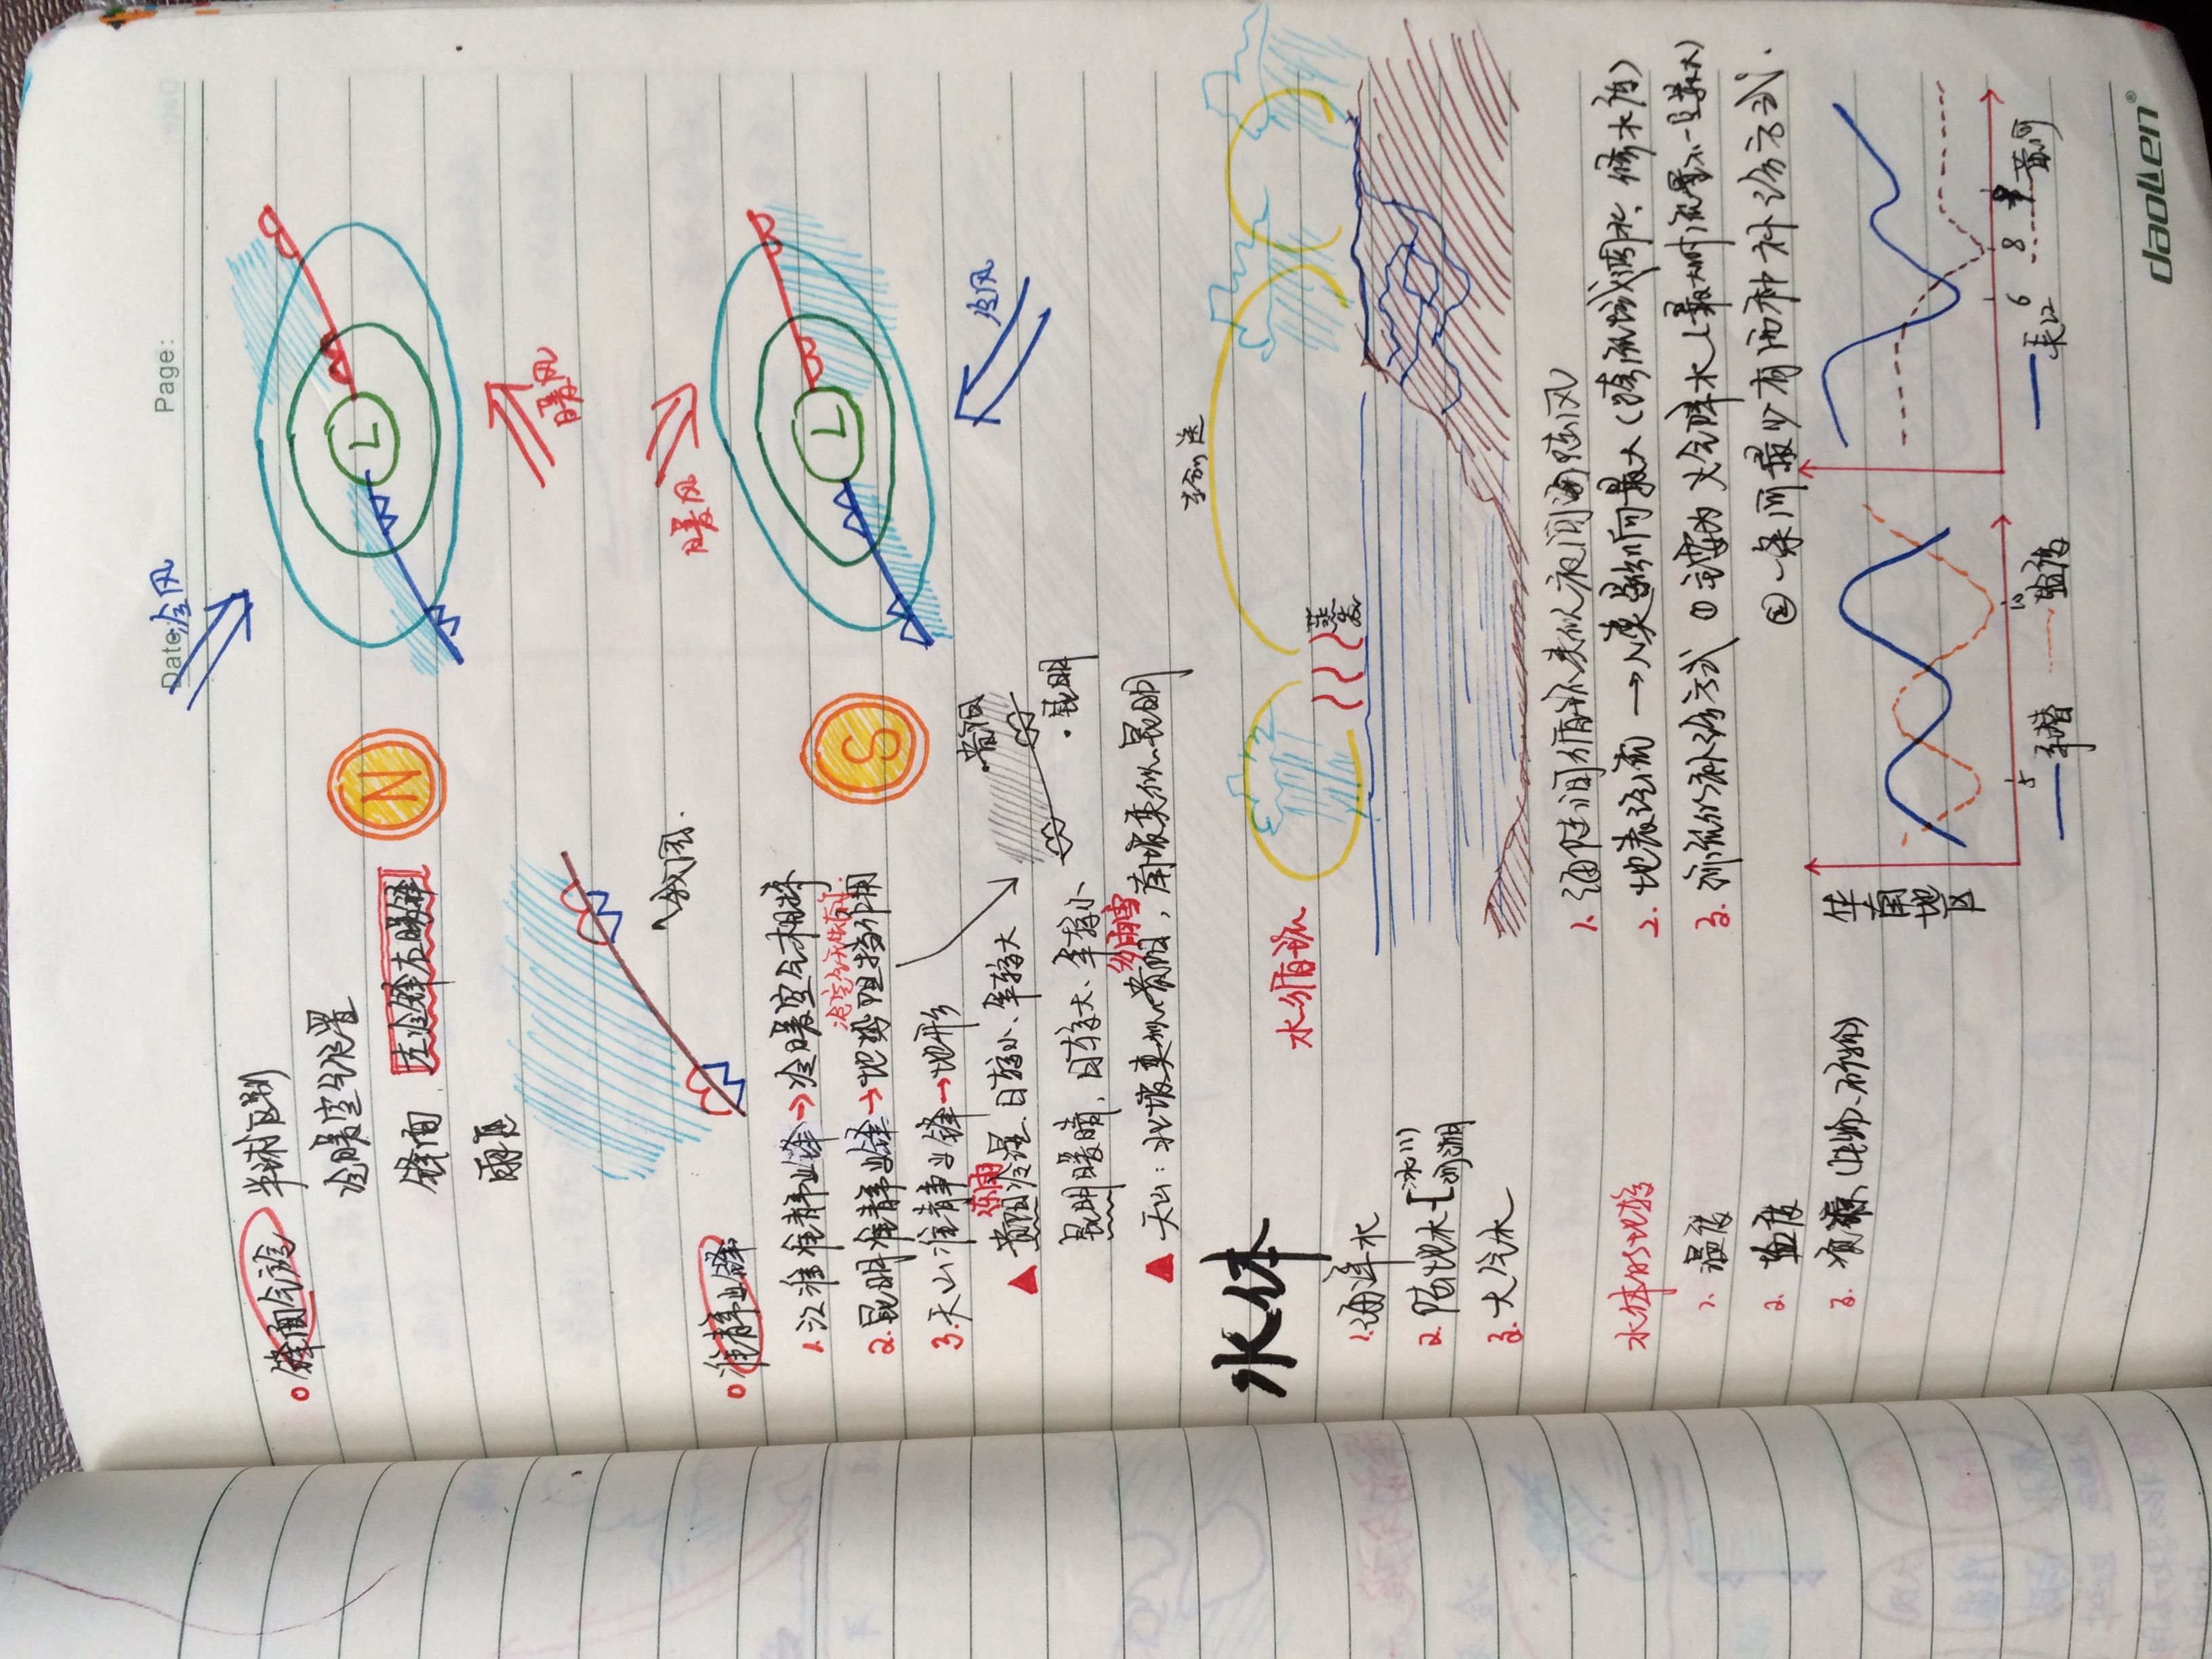 Date: 冷风
Page:
锋面气旋 半球区别
冷暖空气位置
锋面 左冷锋右暖锋
雨区
N
L
暖风
我国.
暖风
准静止锋
1. 江淮准静止锋→冷暖空气相持
2. 昆明准静止锋→地势阻挡作用
S
L
3. 天山准静止锋→地形
冻雨
冷风
贵阳冷湿、日较小、年较大
·贵阳
昆明暖晴，日较大、年较小
·昆明
多雨雪
天山：北坡类似贵阳，南坡类似昆明
水体
水循环
输送
蒸发
1. 海洋水
2. 陆地水 冰川
河湖
3. 大气水
1. 海陆间循环类似夜间海陆风
水体的比较
2. 地表径流→人类影响最大（跨流域调水、修水库）
1. 温度
3. 河流的补给方式 ①主要为大气降水（最大时流量不一定最大）
2. 盐度
②一条河最少有两种补给方式.
3. 资源（生物、矿物）
华南地区
5 10
盐度
6 8
长江 黄河
daolen®